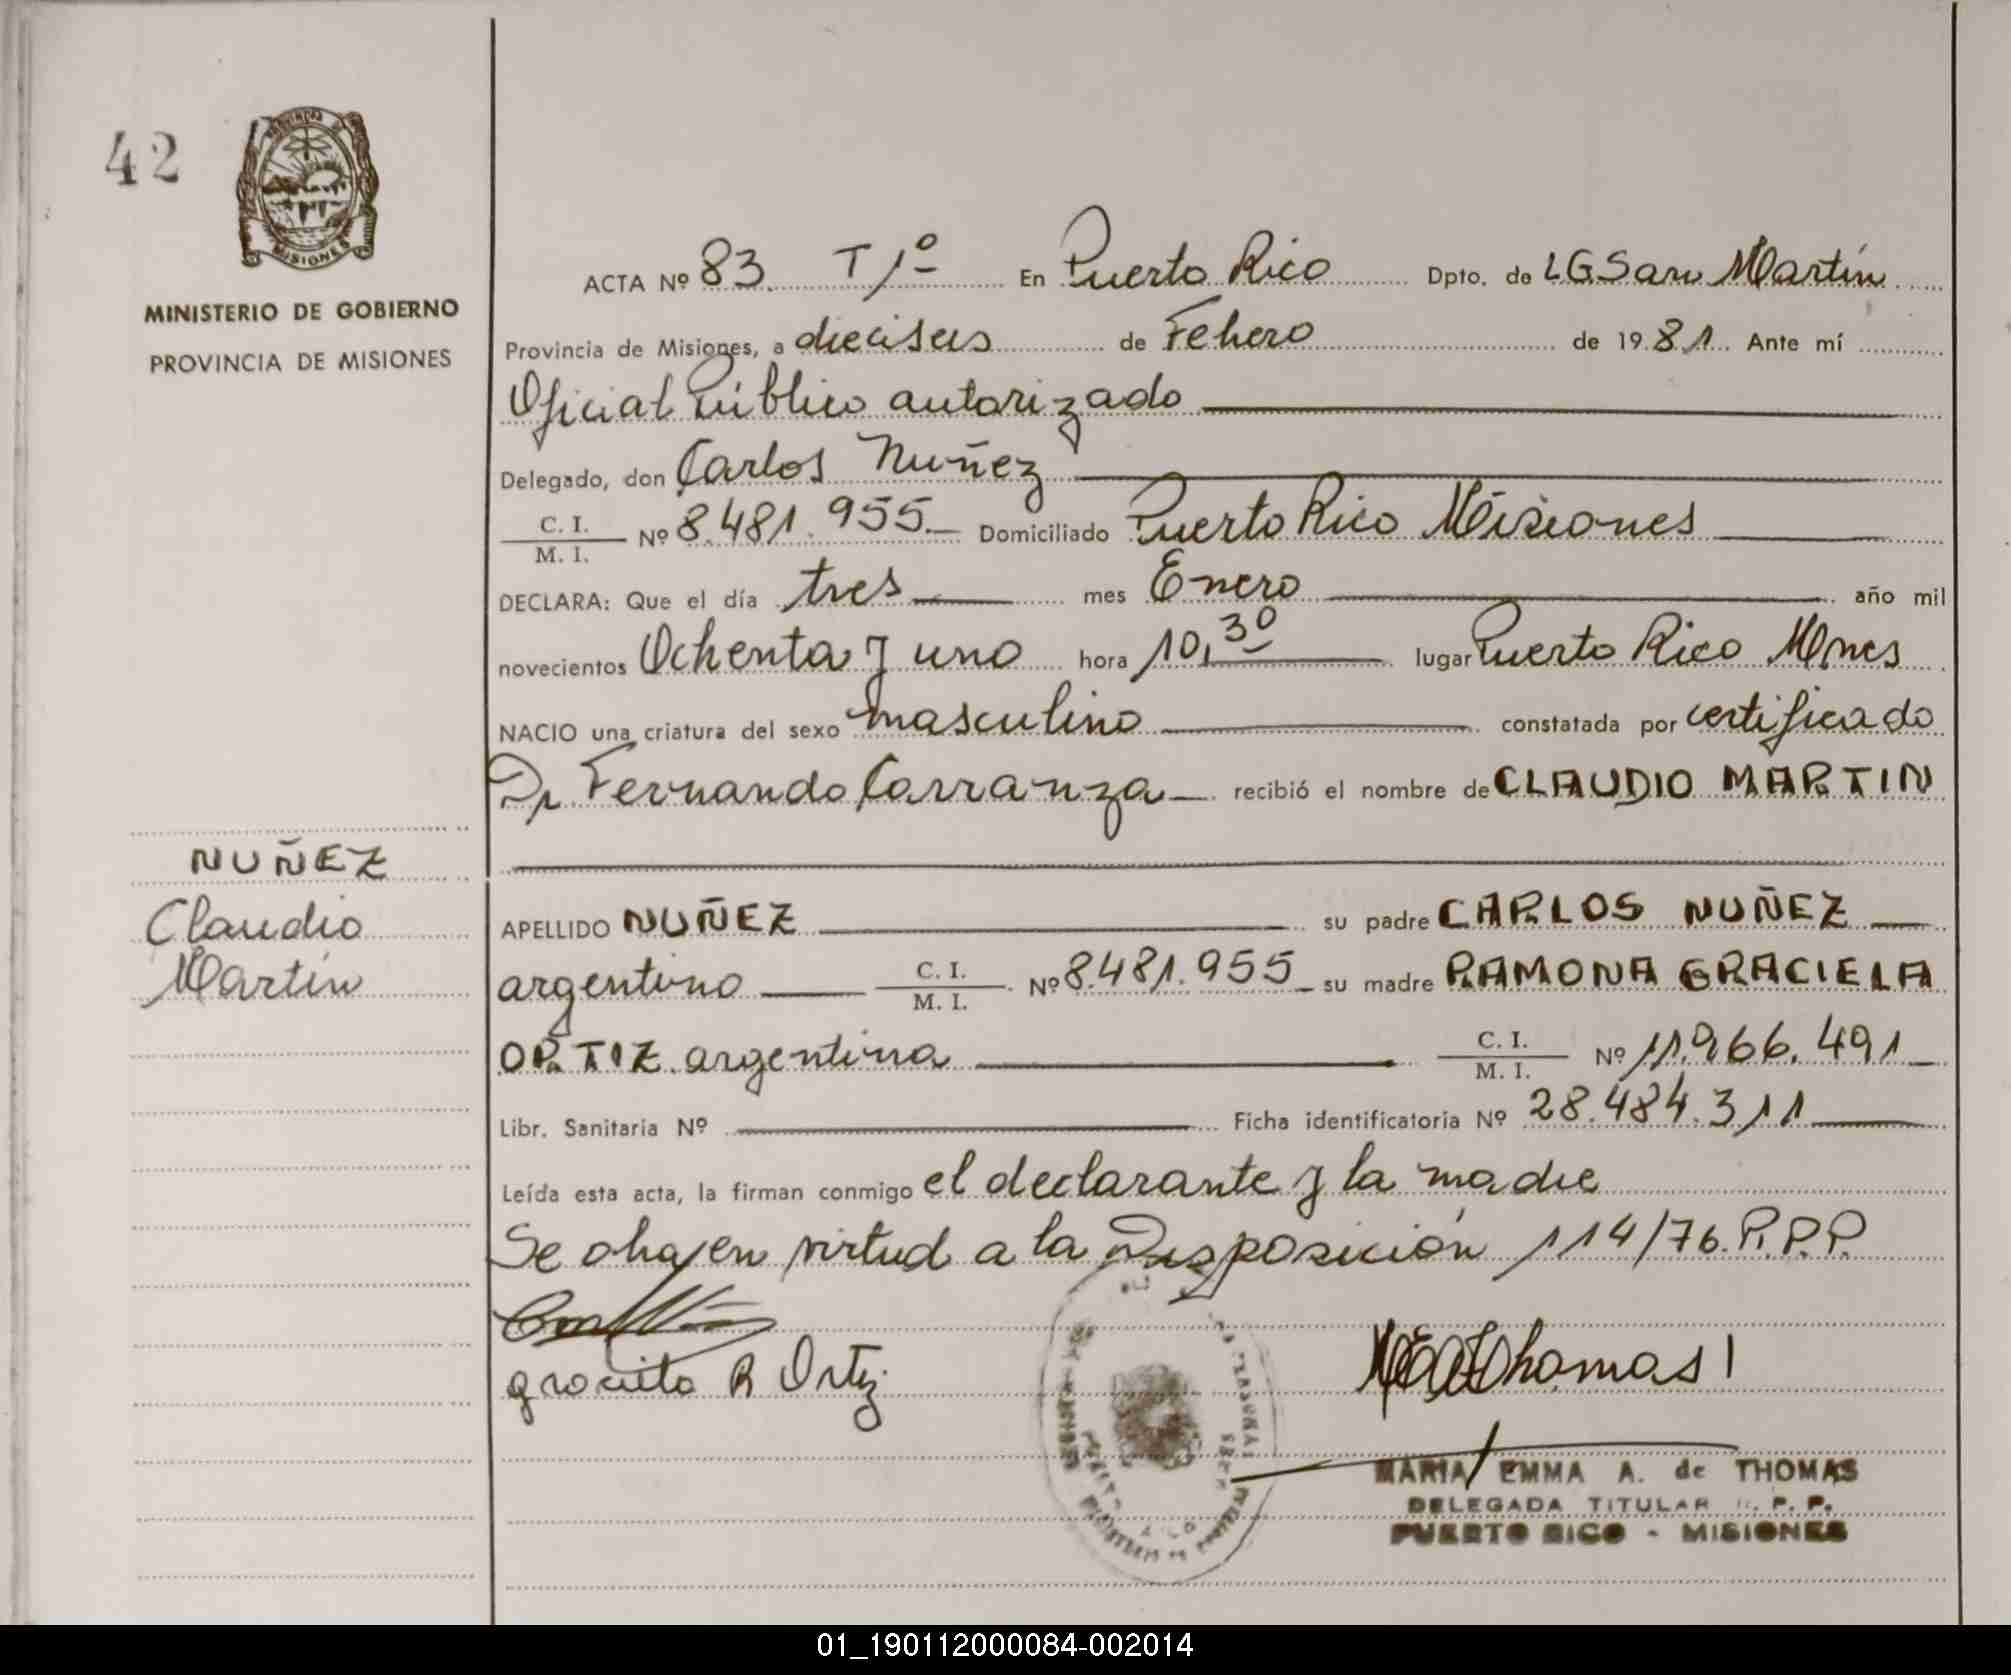 42
PROVINCIA DE
MISIONES
MINISTERIO DE GOBIERNO
PROVINCIA DE MISIONES
NUÑEZ
Claudio
Martín
ACTA Nº 83. T 1º En Puerto Rico Dpto. de L G San Martín
Provincia de Misiones, a dieciseis de Febero de 1981. Ante mí
Oficial Público autorizado
Delegado, don Carlos Nuñez
C. I. / M. I. Nº 8.481.955.— Domiciliado Puerto Rico Misiones
DECLARA: Que el día tres mes Enero año mil
novecientos Ochenta y uno hora 10,30 lugar Puerto Rico Mnes
NACIO una criatura del sexo masculino constatada por certificado
Dr Fernando Carranza — recibió el nombre de CLAUDIO MARTIN
APELLIDO NUÑEZ su padre CARLOS NUÑEZ
argentino C. I. / M. I. Nº 8.481.955 su madre RAMONA GRACIELA
ORTIZ argentina C. I. / M. I. Nº 11.966.491
Libr. Sanitaria Nº Ficha identificatoria Nº 28.484.311
Leída esta acta, la firman conmigo el declarante y la madre
Se en virtud a la Disposición 114/76. P.P.P.
R Ortiz
Thomas
MARIA EMMA A. de THOMAS
DELEGADA TITULAR R. P. P.
PUERTO RICO - MISIONES
01_190112000084-002014